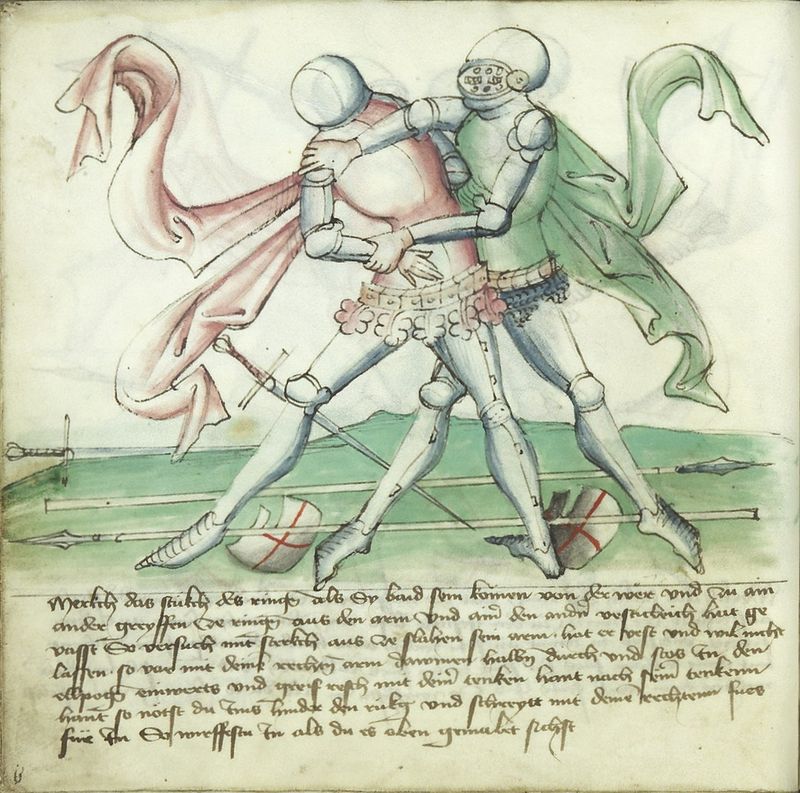 Merckh das stückh des ringñ als Sy baid sein komen von der wer vnd zu ain
ander greyffen ze ringñ aus den arm vnd ainˀ den andˀn vesticleich hat ge
vasst So versuch mit sterckh aus ze slahen sein arm · hat er vest vnd wil nicht
lassen · so var mit deinē rechten arm Inwendig halbñ durch vnd stos In den
ellpogñ einwerts vnd greif resch mit deinˀ tenken hant nach seinˀ tenkenn
hant so nötst du Ims hinder den rukg vnd schreytt mit deinē rechtenn fues
für In So wirffestu In als du es oben gemalet sichst